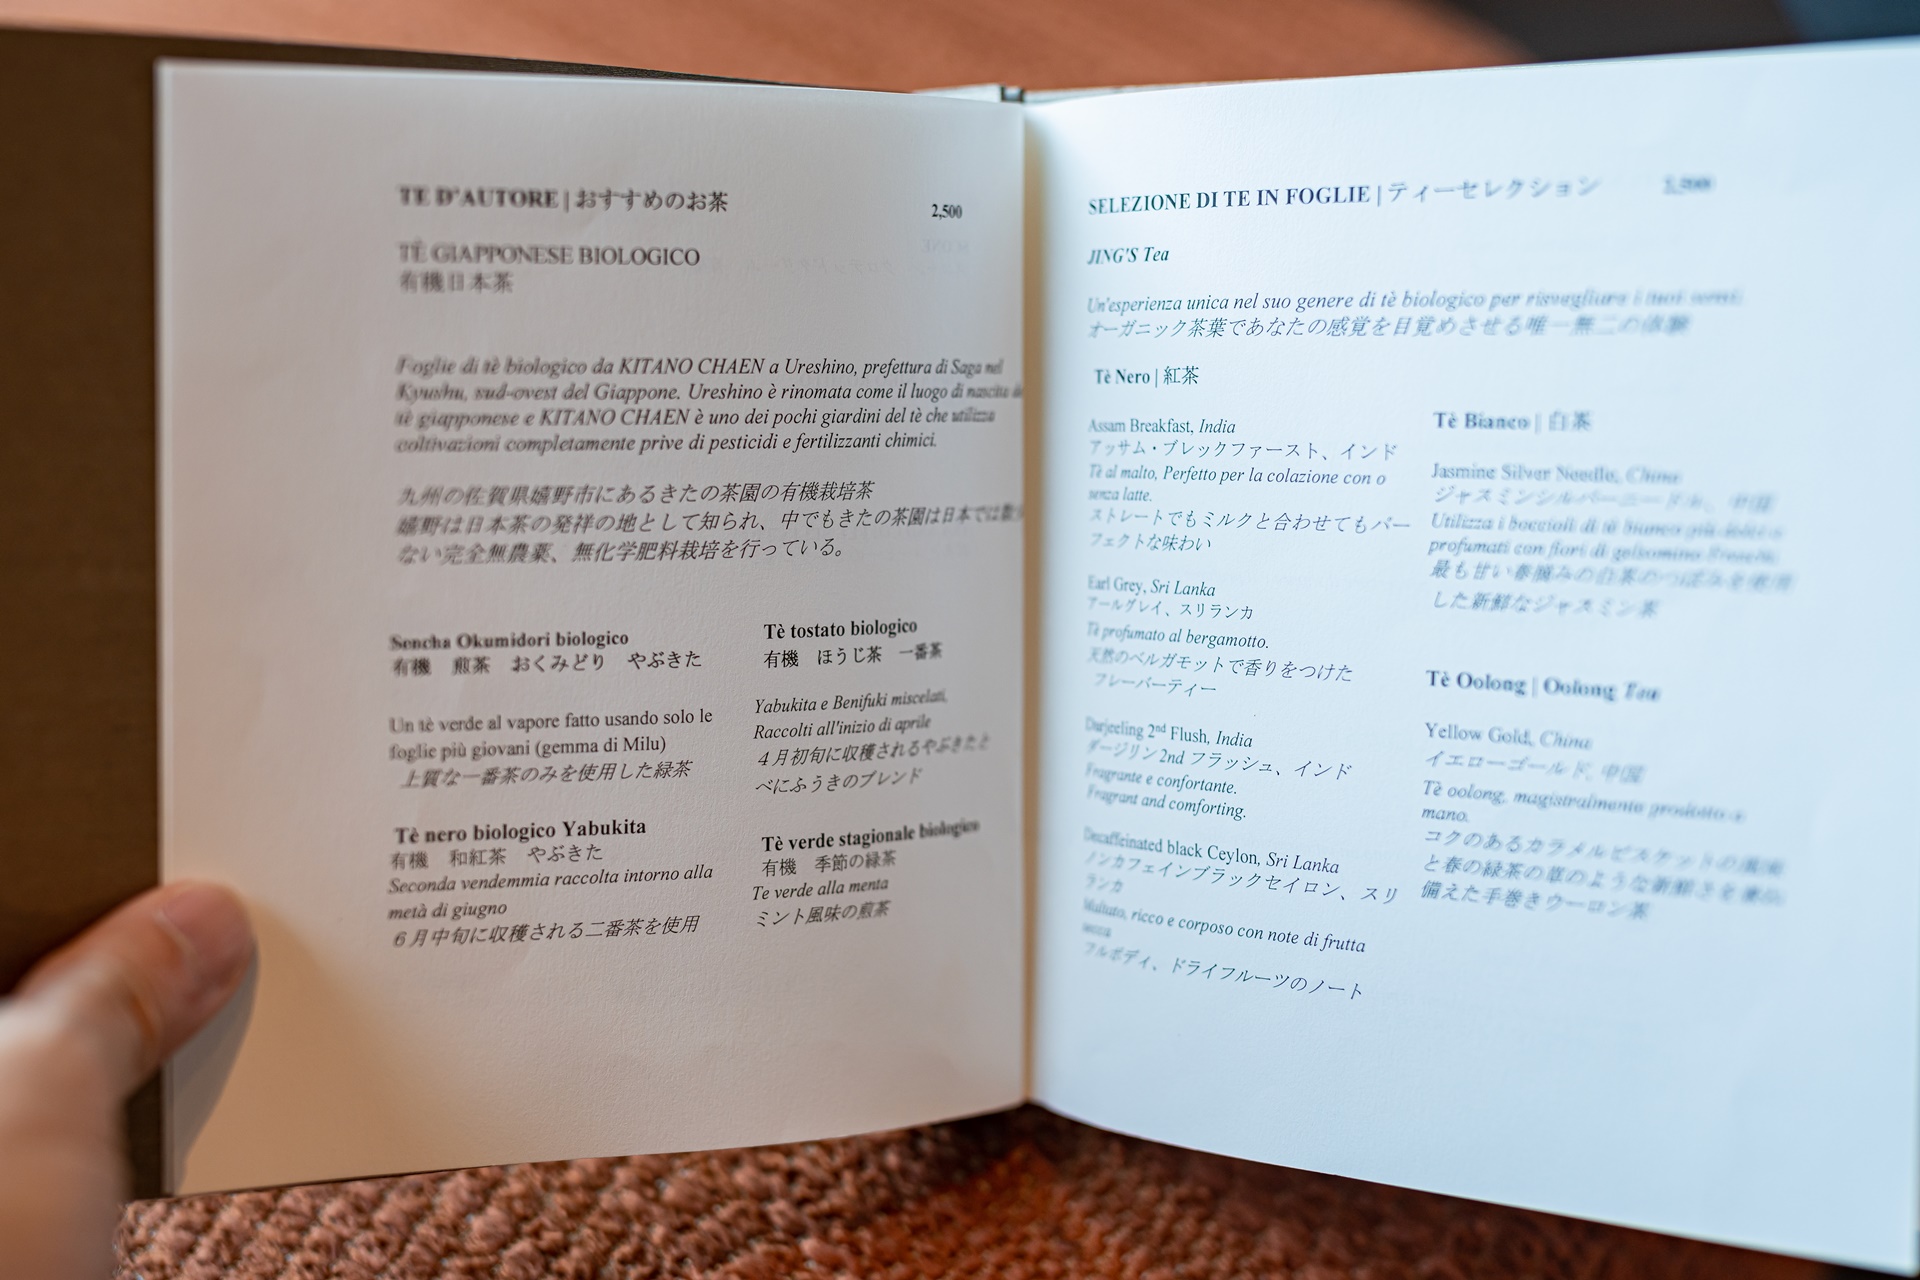 TE D'AUTORE | おすすめのお茶
2,500
TÈ GIAPPONESE BIOLOGICO
有機日本茶
Foglie di tè biologico da KITANO CHAEN a Ureshino, prefettura di Saga nel
Kyushu, sud-ovest del Giappone. Ureshino è rinomata come il luogo di nascita
tè giapponese e KITANO CHAEN è uno dei pochi giardini del tè che utilizza
coltivazioni completamente prive di pesticidi e fertilizzanti chimici.
九州の佐賀県嬉野市にあるきたの茶園の有機栽培茶
嬉野は日本茶の発祥の地として知られ、中でもきたの茶園は日本では数
ない完全無農薬、無化学肥料栽培を行っている。
Sencha Okumidori biologico
有機 煎茶 おくみどり やぶきた
Un tè verde al vapore fatto usando solo le
foglie più giovani (gemma di Milu)
上質な一番茶のみを使用した緑茶
Tè nero biologico Yabukita
有機 和紅茶 やぶきた
Seconda vendemmia raccolta intorno alla
metà di giugno
6月中旬に収穫される二番茶を使用
Tè tostato biologico
有機 ほうじ茶 一番茶
Yabukita e Benifuki miscelati,
Raccolti all'inizio di aprile
4月初旬に収穫されるやぶきたと
べにふうきのブレンド
Tè verde stagionale biologico
有機 季節の緑茶
Te verde alla menta
ミント風味の煎茶
SELEZIONE DI TE IN FOGLIE | ティーセレクション
JING'S Tea
Un'esperienza unica nel suo genere di tè biologico per risvegliare i tuoi sensi
オーガニック茶葉であなたの感覚を目覚めさせる唯一無二の体験
Tè Nero | 紅茶
Assam Breakfast, India
アッサム・ブレックファースト、インド
Tè al malto, Perfetto per la colazione con o
senza latte.
ストレートでもミルクと合わせてもパー
フェクトな味わい
Earl Grey, Sri Lanka
アールグレイ、スリランカ
Tè profumato al bergamotto.
天然のベルガモットで香りをつけた
フレーバーティー
Darjeeling 2nd Flush, India
ダージリン2nd フラッシュ、インド
Fragrante e confortante.
Fragrant and comforting.
Decaffeinated black Ceylon, Sri Lanka
ノンカフェインブラックセイロン、スリ
ランカ
Maltato, ricco e corposo con note di frutta
secca
フルボディ、ドライフルーツのノート
Tè Bianco | 白茶
Jasmine Silver Needle, China
ジャスミンシルバーニードル、中国
Utilizza i boccioli di tè bianco più dolci e
profumati con fiori di gelsomino freschi.
最も甘い春摘みの白茶のつぼみを使用
した新鮮なジャスミン茶
Tè Oolong | Oolong Tea
Yellow Gold, China
イエローゴールド, 中国
Tè oolong, magistralmente prodotto a
mano.
コクのあるカラメルビスケットの風味
と春の緑茶の草のような新鮮さを兼ね
備えた手巻きウーロン茶